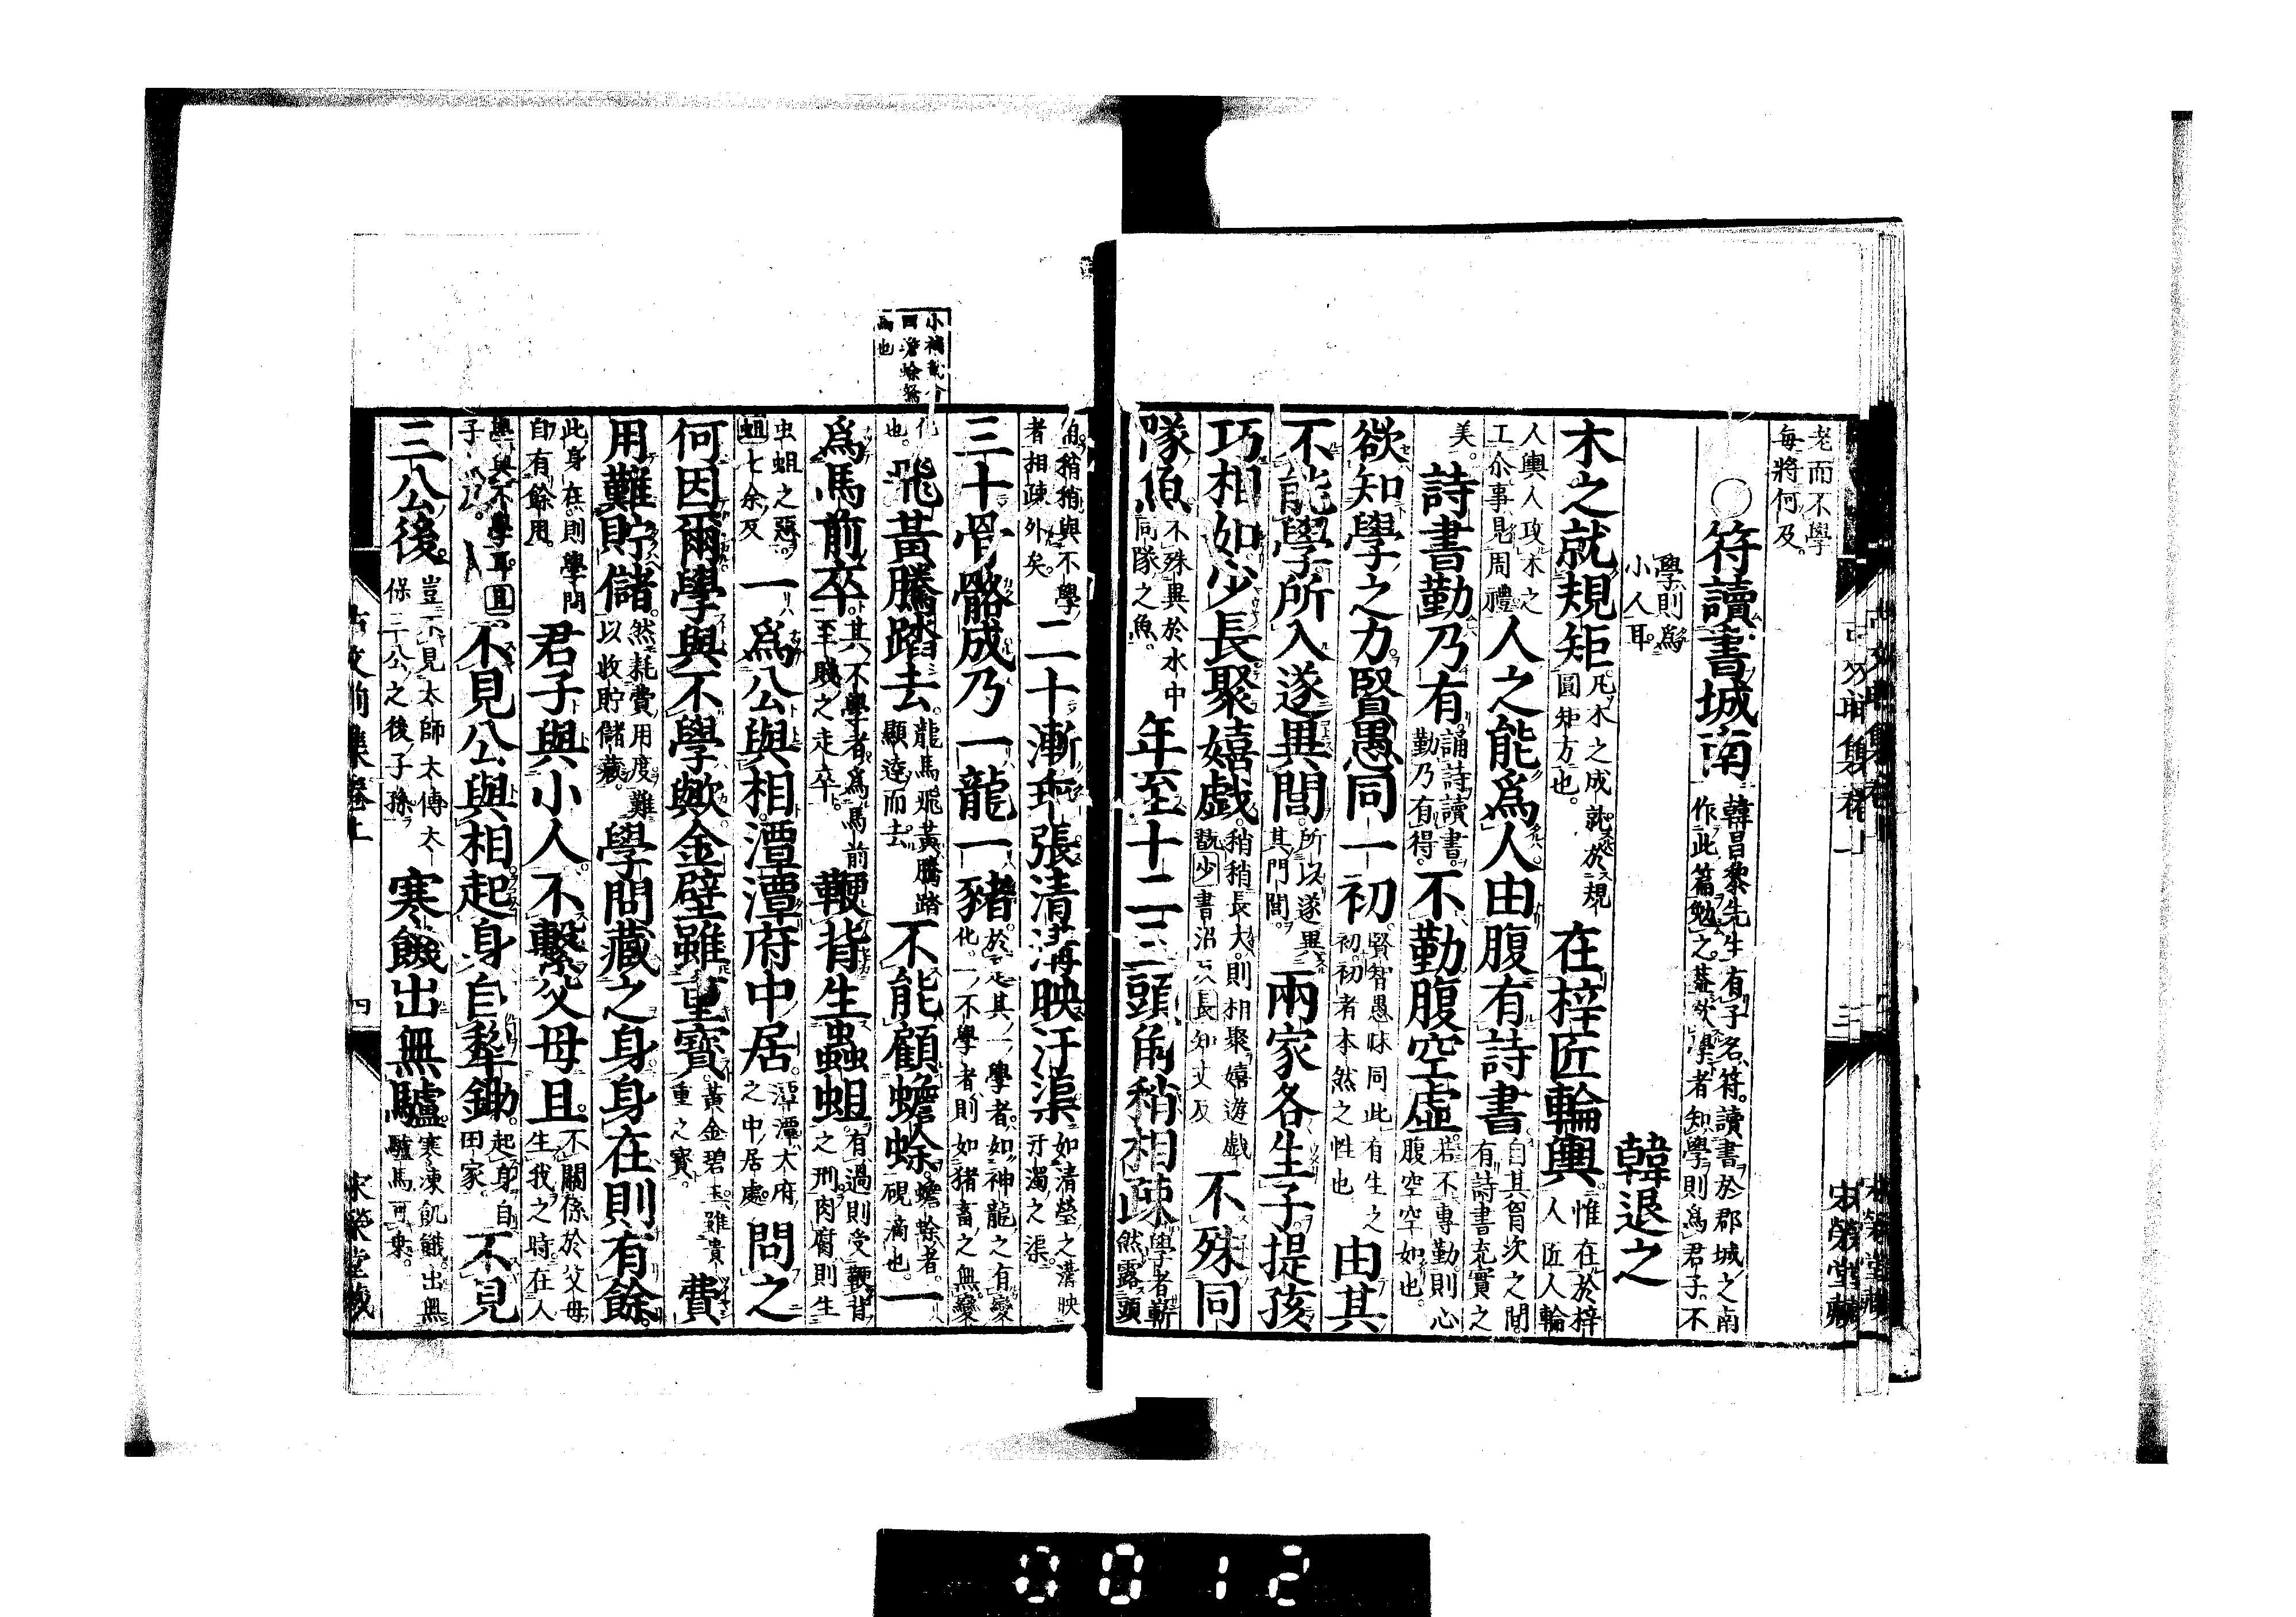 老而不學
每將何及
○符讀書城南
韓昌黎先生有子名符讀書於郡城之南
作此篇勉之蓋欲學者知學則爲君子不
學則爲
小人耳
韓退之
木之就規矩
凡木之成就於規
圓矩方也
在梓匠輪輿
惟在於梓
人匠人輪
人輿人攻木之
工尒事見周禮
人之能爲人由腹有詩書
自其胷次之間
有詩書充實之
美
詩書勤乃有
誦詩讀書
勤乃有得
不勤腹空虛
若不專勤則心
腹空空如也
欲知學之力賢愚同一初
賢智愚昧同此有生之
初初者本然之性也
由其
不能學所入遂異閭
所以遂異
其門閭
兩家各生子提孩
巧相如少長聚嬉戲
稍稍長大則相聚嬉遊戲
翫少書沼反長知丈反
不殊同
隊魚
不殊異於水中
同隊之魚
年至十二三頭角稍相疎
學者嶄
然露頭
角稍稍與不學
者相疎外矣
二十漸乖張清溝映汙渠
如清瑩之溝映
汙濁之渠
三十骨骼成乃一龍一豬
於是其一學者如神龍之有變
化一不學者則如猪畜之無變
化
也
飛黃騰踏去
龍馬飛黃騰踏
顯達而去
不能顧蟾蜍
蟾蜍者
硯滴也
一
小補韻會
曰蟾蜍
爲也
爲馬前卒
其不學者爲馬前
至賤之走卒
鞭背生蟲蛆
有過則受鞭背
之刑肉腐則生
虫蛆之惡
蛆七余反
一爲公與相潭潭府中居
潭潭大府
之中居處
問之
何因爾學與不學歟金璧雖重寶
黃金碧玉雖貴
重之寳
費
用難貯儲
然耗費用度難
以收貯儲藏
學問藏之身身在則有餘
此身在則學問
自有餘用
君子與小人不繫父母且
不關係於父母
生我之時在人
學與不學耳
不見公與相起身自犂鋤
起身自
田家
不見
三公後
豈不見太師太傅太
保三公之後子孫
寒饑出無驢
寒凍飢餓出無
驢馬可乘
四
宋榮堂藏
三
宋榮堂藏
0012